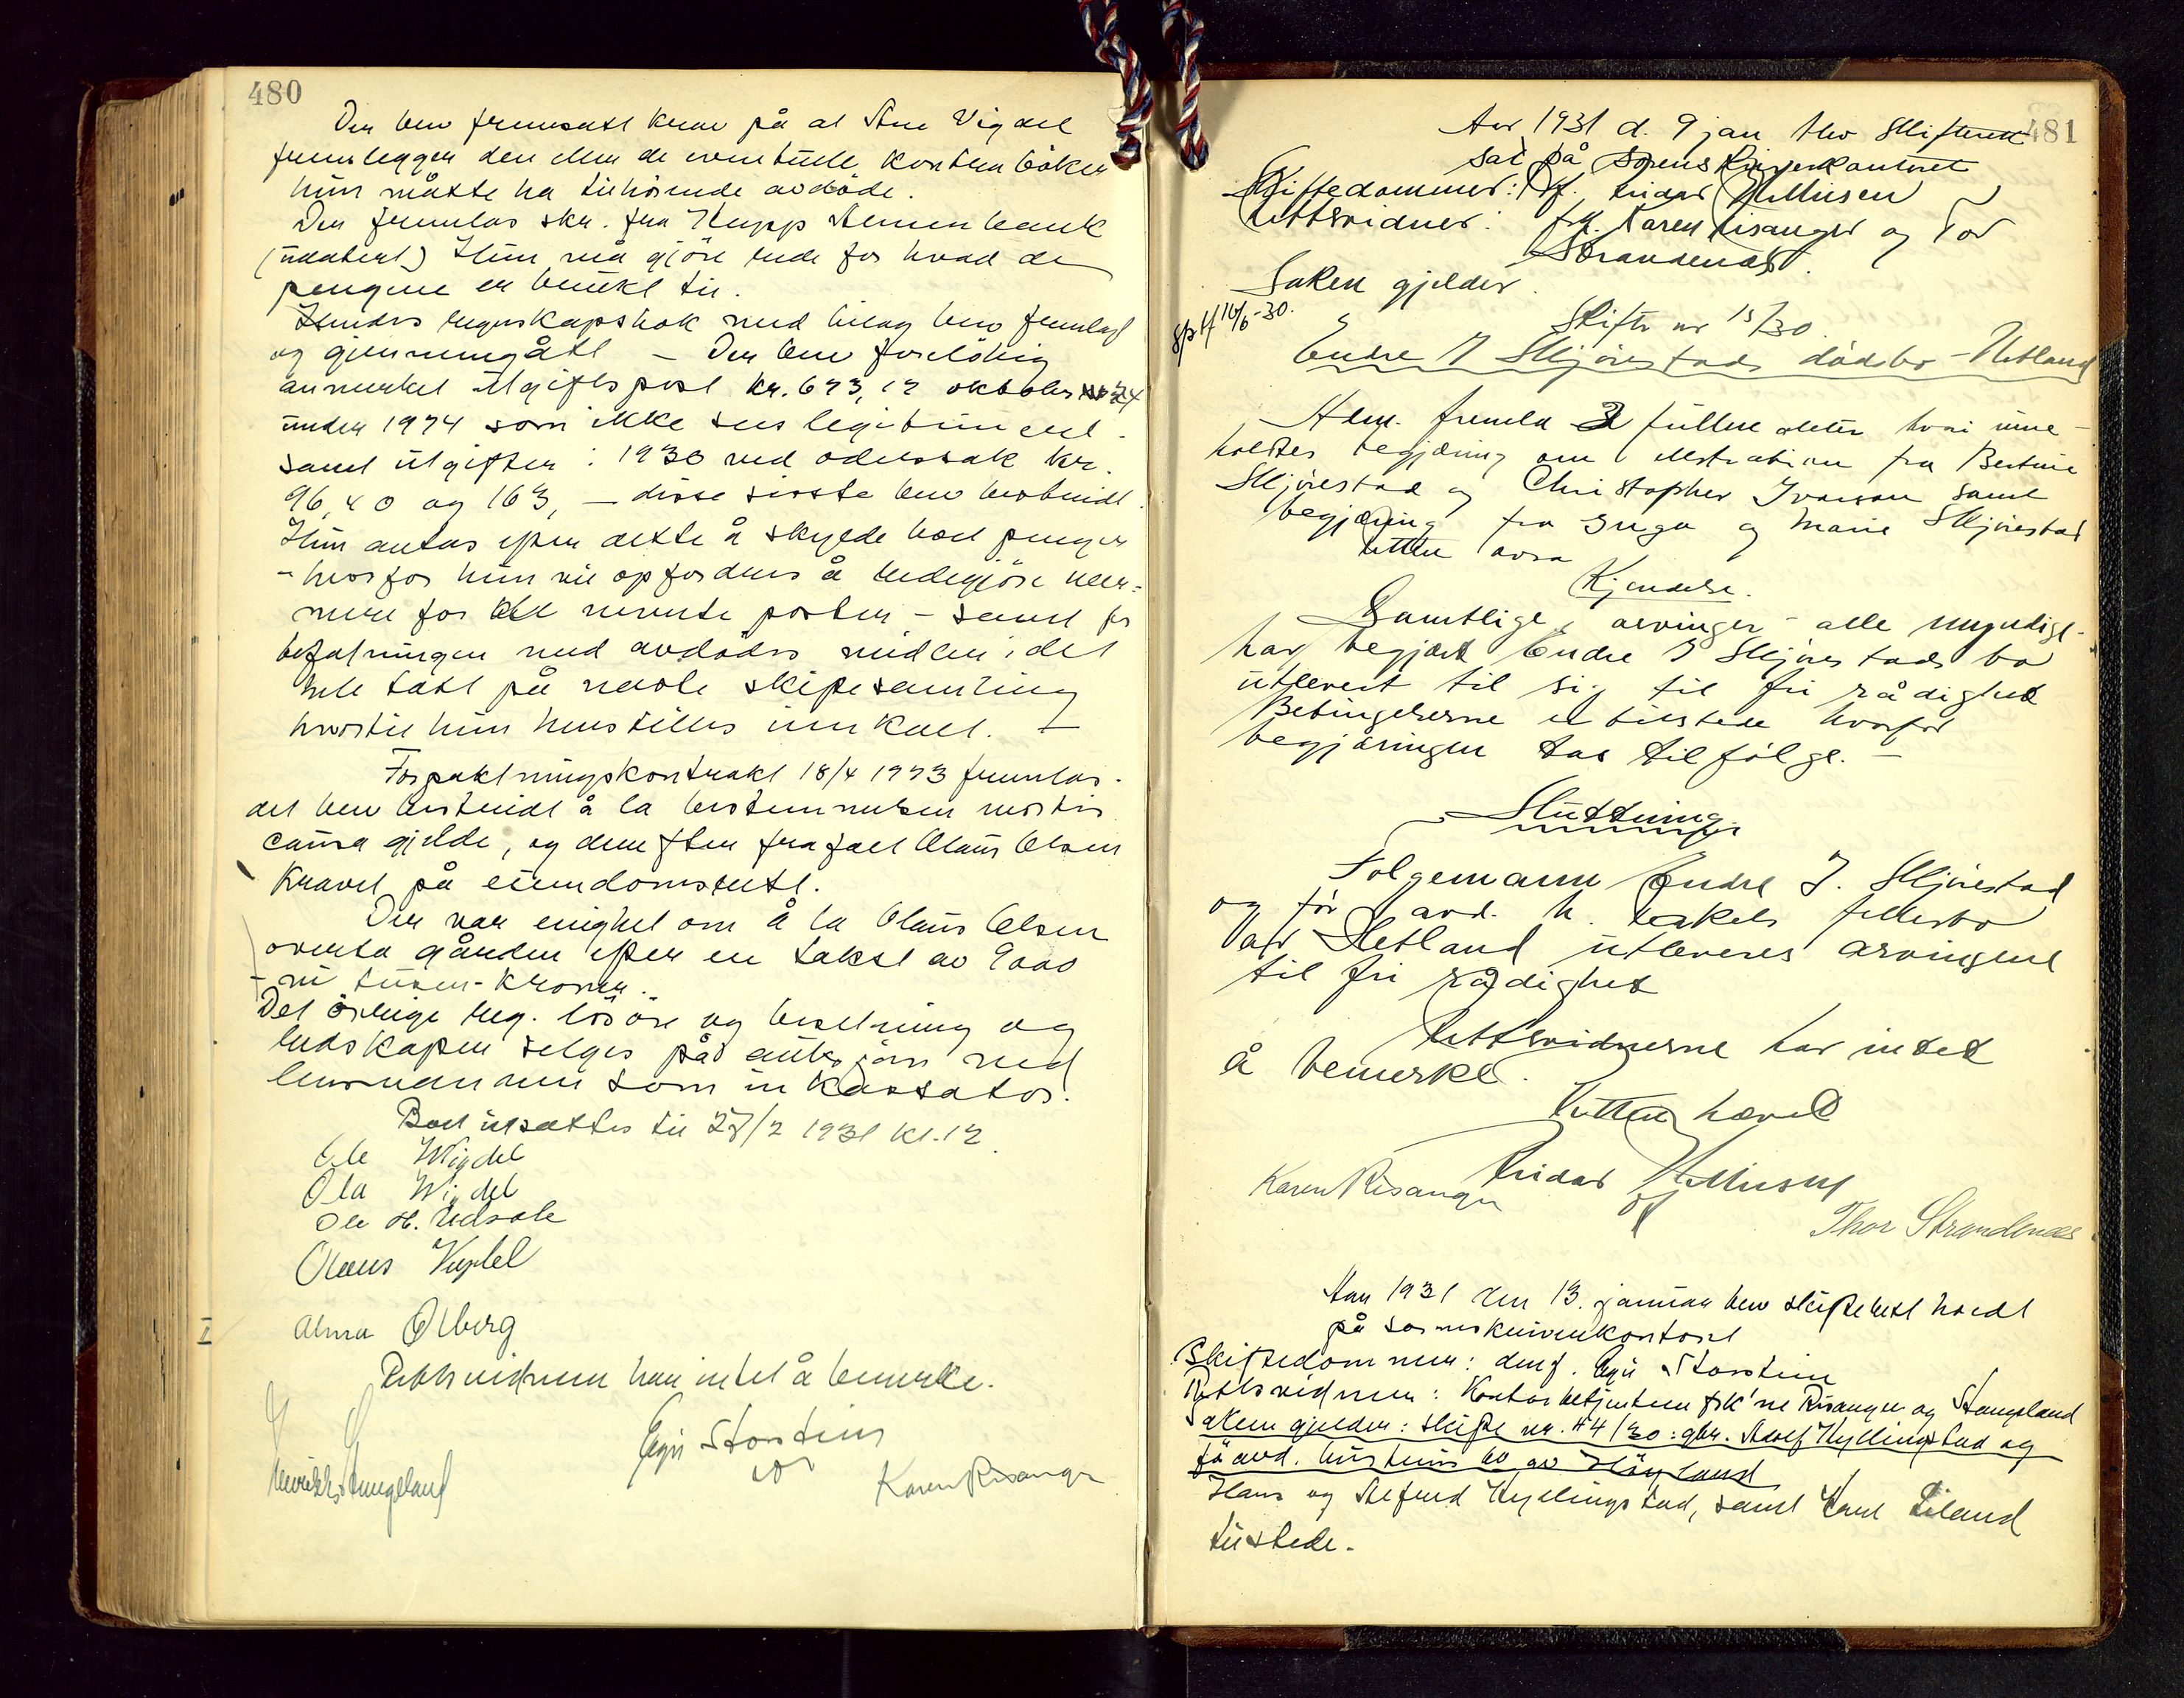 480
Der blev fremsatt krav på at Ane Vigdel
fremlegger den eller de eventuelle kontra bøker
hun måtte ha tilhørende avdøde.
Der fremlas skr. fra Klepp Almenbank
(udatert) Hun må gjøre rede for hvad de
pengene er brukt til.
Hendes regnskapsbok med bilag blev fremlagt
og gjennemgått — Der blev foreløbig
anmerket utgiftspost kr. 673,12 oktober
under 1924 som ikke sees legitimert
samt utgifter i 1930 ved odelssak kr.
96,40 og 163, — disse siste blev bestridt.
Hun antas efter dette å skylde boet penger
- hvorfor hun vil opfordres å redegjøre nær-
mere for de nevnte poster - samt for
befatningen med avdødes midler i det
hele tatt på neste skiftesamling
hvortil hun henstilles innkalt. —
Forpaktningskontrakt 18/4 1923 fremlas.
det blev bestridt å la bestemmelsen mortis
causa gjelde, og derefter frafalt Olaus Olsen
kravet på eiendomsrett.
Der var enighet om å la Olaus Olsen
overta gården efter en takst av 9000
- ni tusen - kroner.
Det øvrige reg. løsøre og besetning og
redskaper selges på auksjon ved
lensmannen som inkassator.
Boet utsattes til 27/2 1931 kl. 12.
Ole Wigdel
Ola Wigdel
Ole H.
Olaus Vigdel
I Alma Ølberg
Rettsvidnene har intet å bemerke.
Egil Storstein
Karen Risanger
Stangeland
481
Aar 1931 d. 9 jan blev Skifterett
sat på sorenskriverkontoret
Skiftedommer: Df. Reidar Mellusen
Rettsvidner: frk. Karen Risanger og Tor
Strandenæs.
Saken gjelder.
Skifte nr 15/30.
Endre J Skjørestads dødsbo - Hetland
Adm. fremla 3 fullmakter hvori inne-
holdtes begjæring om ekstradition fra Bertine
Skjørestad og Christopher Ivarson samt
begjæring fra Inga og Marie Skjørestad
Retten avsa
Kjendelse.
Samtlige arvinger - alle myndige -
har begjært Endre J Skjørestads bo
utlevert til sig til fri rådighet
Betingelserne er tilstede hvorfor
begjæringen tas tilfølge. —
Slutning
Folgemann Endre J. Skjørestad
og før avd. h. Rakels fellesbo
av Hetland utleveres arvingene
til fri rådighet
Rettsvidnerne har intet
å bemerke.
Retten hævet
Reidar Mellusen
Karen Risanger
Df
Thor Strandenæs
Aar 1931 den 13. januar blev skifterett holdt
på sorenskriverkontoret
Skiftedommer: domf. Egil Storstein
Rettsvidner: Kontorbetjentene frk'ne Risanger og Stangeland
Saken gjelder: Skifte nr. 44/30: gbr. Adolf Kyllingstad og
fø avd. hustrus bo av Høyland
Hans og Alfred Kyllingstad, samt Emil Liland
tilstede.